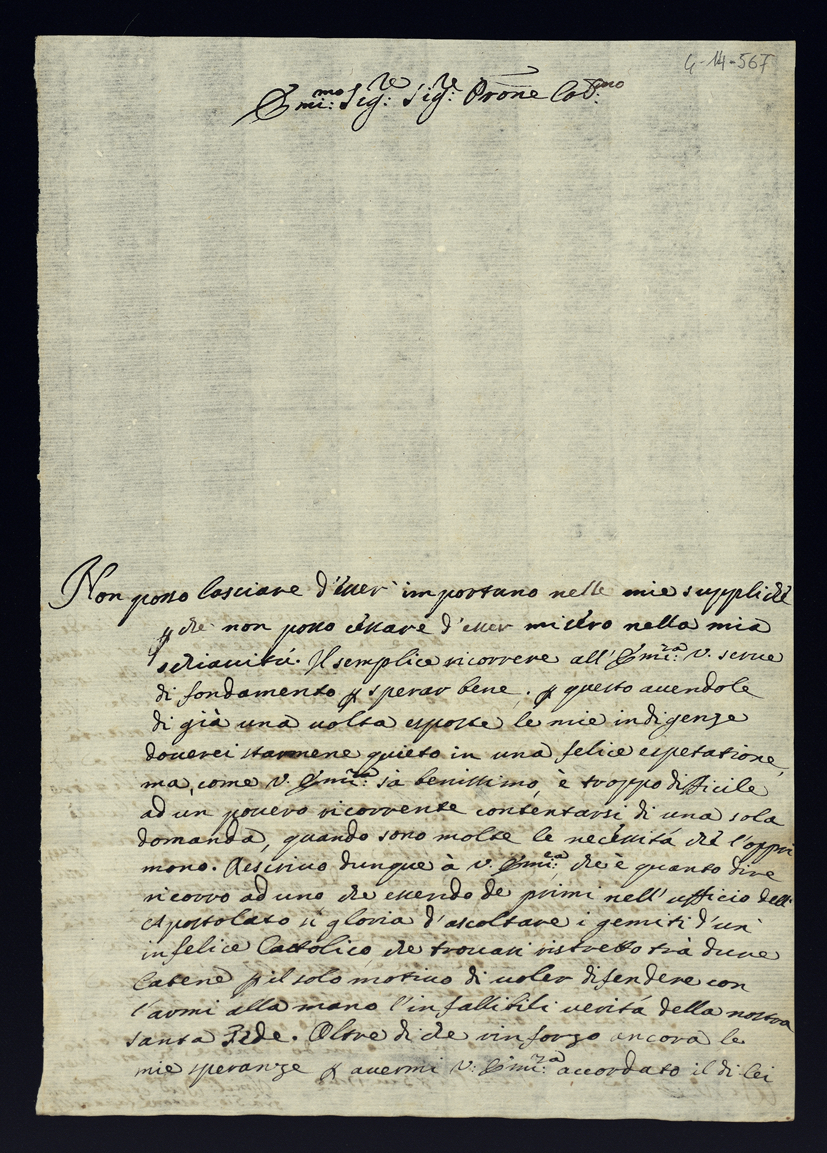 4-14-567
Emi:mo Sig:re Sig:re Prone Col:mo
Non posso lasciare d'esser importuno nelle mie suppliche
p che non posso cessare d'esser misero nella mia
schiavitú. Il semplice ricorrere all'Emi:za V. serve
di fondamento p sperar bene. p questo avendole
di già una volta esposte le mie indigenze
doverei starmene quieto in una felice espetatione,
ma, come V. Emi:za sà benissimo, è troppo difficile
ad un povero ricorrente contentarsi di una sola
domanda, quando sono molte le necessitá che l'oppri
mono. Rescrivo dunque à V. Emi:za, che è quanto dire
ricorro ad uno che essendo de primi nell'ufficio dell'
Apostolato si gloria d'ascoltare i gemiti d'un
infelice Cattolico, che trovasi ristretto trà dure
Catene p il solo motivo di voler difendere con
l'armi alla mano l'infallibili veritá della nostra
santa Fede. Oltre di che rinforzo ancora le
mie speranze p avermi V: Emi:za accordato il di lei